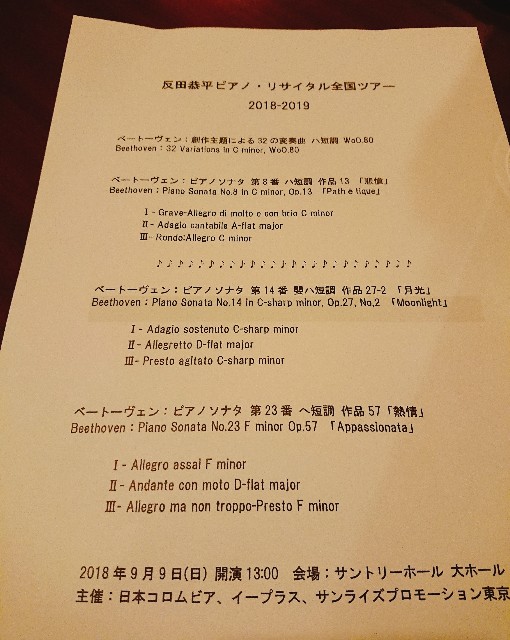 反田恭平ピアノ・リサイタル全国ツアー
2018-2019
ベートーヴェン：創作主題による32の変奏曲 ハ短調 WoO.80
Beethoven：32 Variations in C minor, WoO.80
ベートーヴェン：ピアノソナタ 第8番 ハ短調 作品13 「悲愴」
Beethoven：Piano Sonata No.8 in C minor, Op.13 「Path e tique」
Ⅰ- Grave-Allegro di molto e con brio C minor
Ⅱ- Adagio cantabile A-flat major
Ⅲ- Rondo:Allegro C minor
♪♪♪♪♪♪♪♪♪♪♪♪♪♪♪♪♪♪♪♪♪♪
ベートーヴェン：ピアノソナタ 第14番 嬰ハ短調 作品27-2 「月光」
Beethoven：Piano Sonata No.14 in C-sharp minor, Op.27, No.2 「Moonlight」
Ⅰ- Adagio sostenuto C-sharp minor
Ⅱ- Allegretto D-flat major
Ⅲ- Presto agitato C-sharp minor
ベートーヴェン：ピアノソナタ 第23番 ヘ短調 作品57「熱情」
Beethoven：Piano Sonata No.23 F minor Op.57 「Appassionata」
Ⅰ- Allegro assai F minor
Ⅱ- Andante con moto D-flat major
Ⅲ- Allegro ma non troppo-Presto F minor
2018年9月9日(日) 開演13:00 会場：サントリーホール 大ホール
主催：日本コロムビア、イープラス、サンライズプロモーション東京